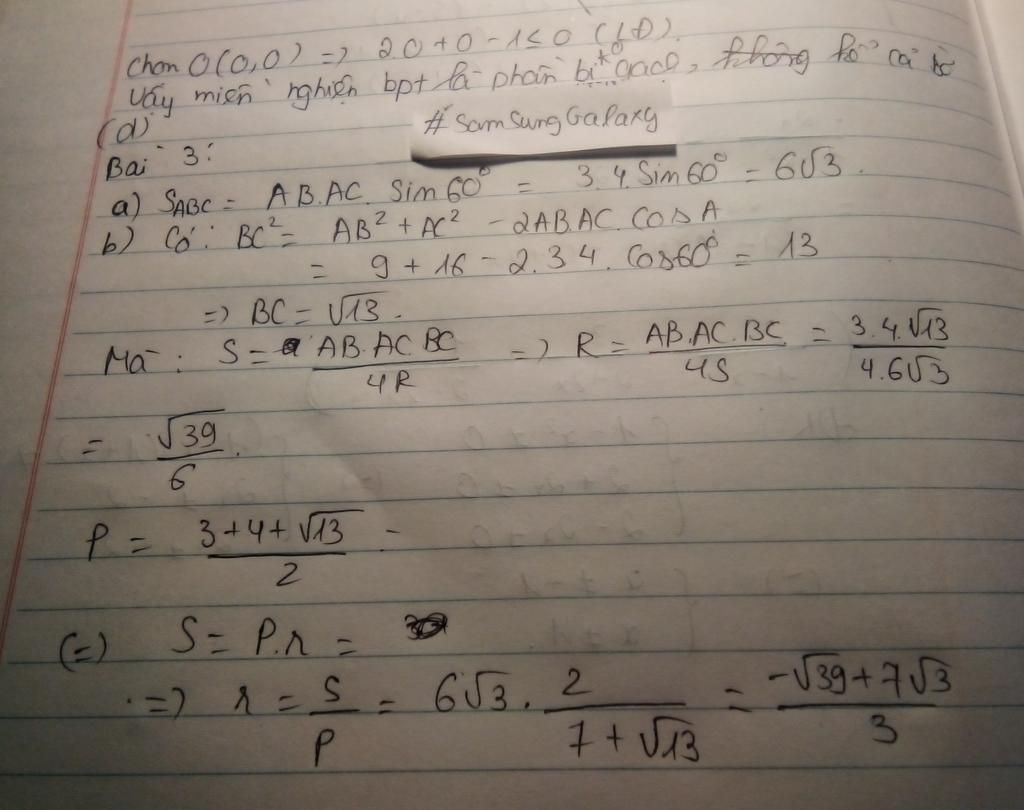 chọn O(0,0) => 2.0 + 0 - 1 ≤ 0 (LĐ).
Vậy miền nghiệm bpt là phần bị gạch, không kể cả bờ
(d)
#SamSungGalaxy
Bài 3:
a) SABC = AB.AC. Sin60° = 3.4.Sin60° = 6√3.
b) Có: BC² = AB² + AC² - 2AB.AC. CosA
= 9 + 16 - 2.3 4. Cos60° = 13
=> BC = √13.
Mà: S = AB.AC.BC / 4R => R = AB.AC.BC / 4S = 3.4.√13 / 4.6√3
= √39 / 6.
P = 3+4+√13 / 2
(=) S = P.r =
=> r = S / P = 6√3. 2 / 7+√13 = -√39+7√3 / 3